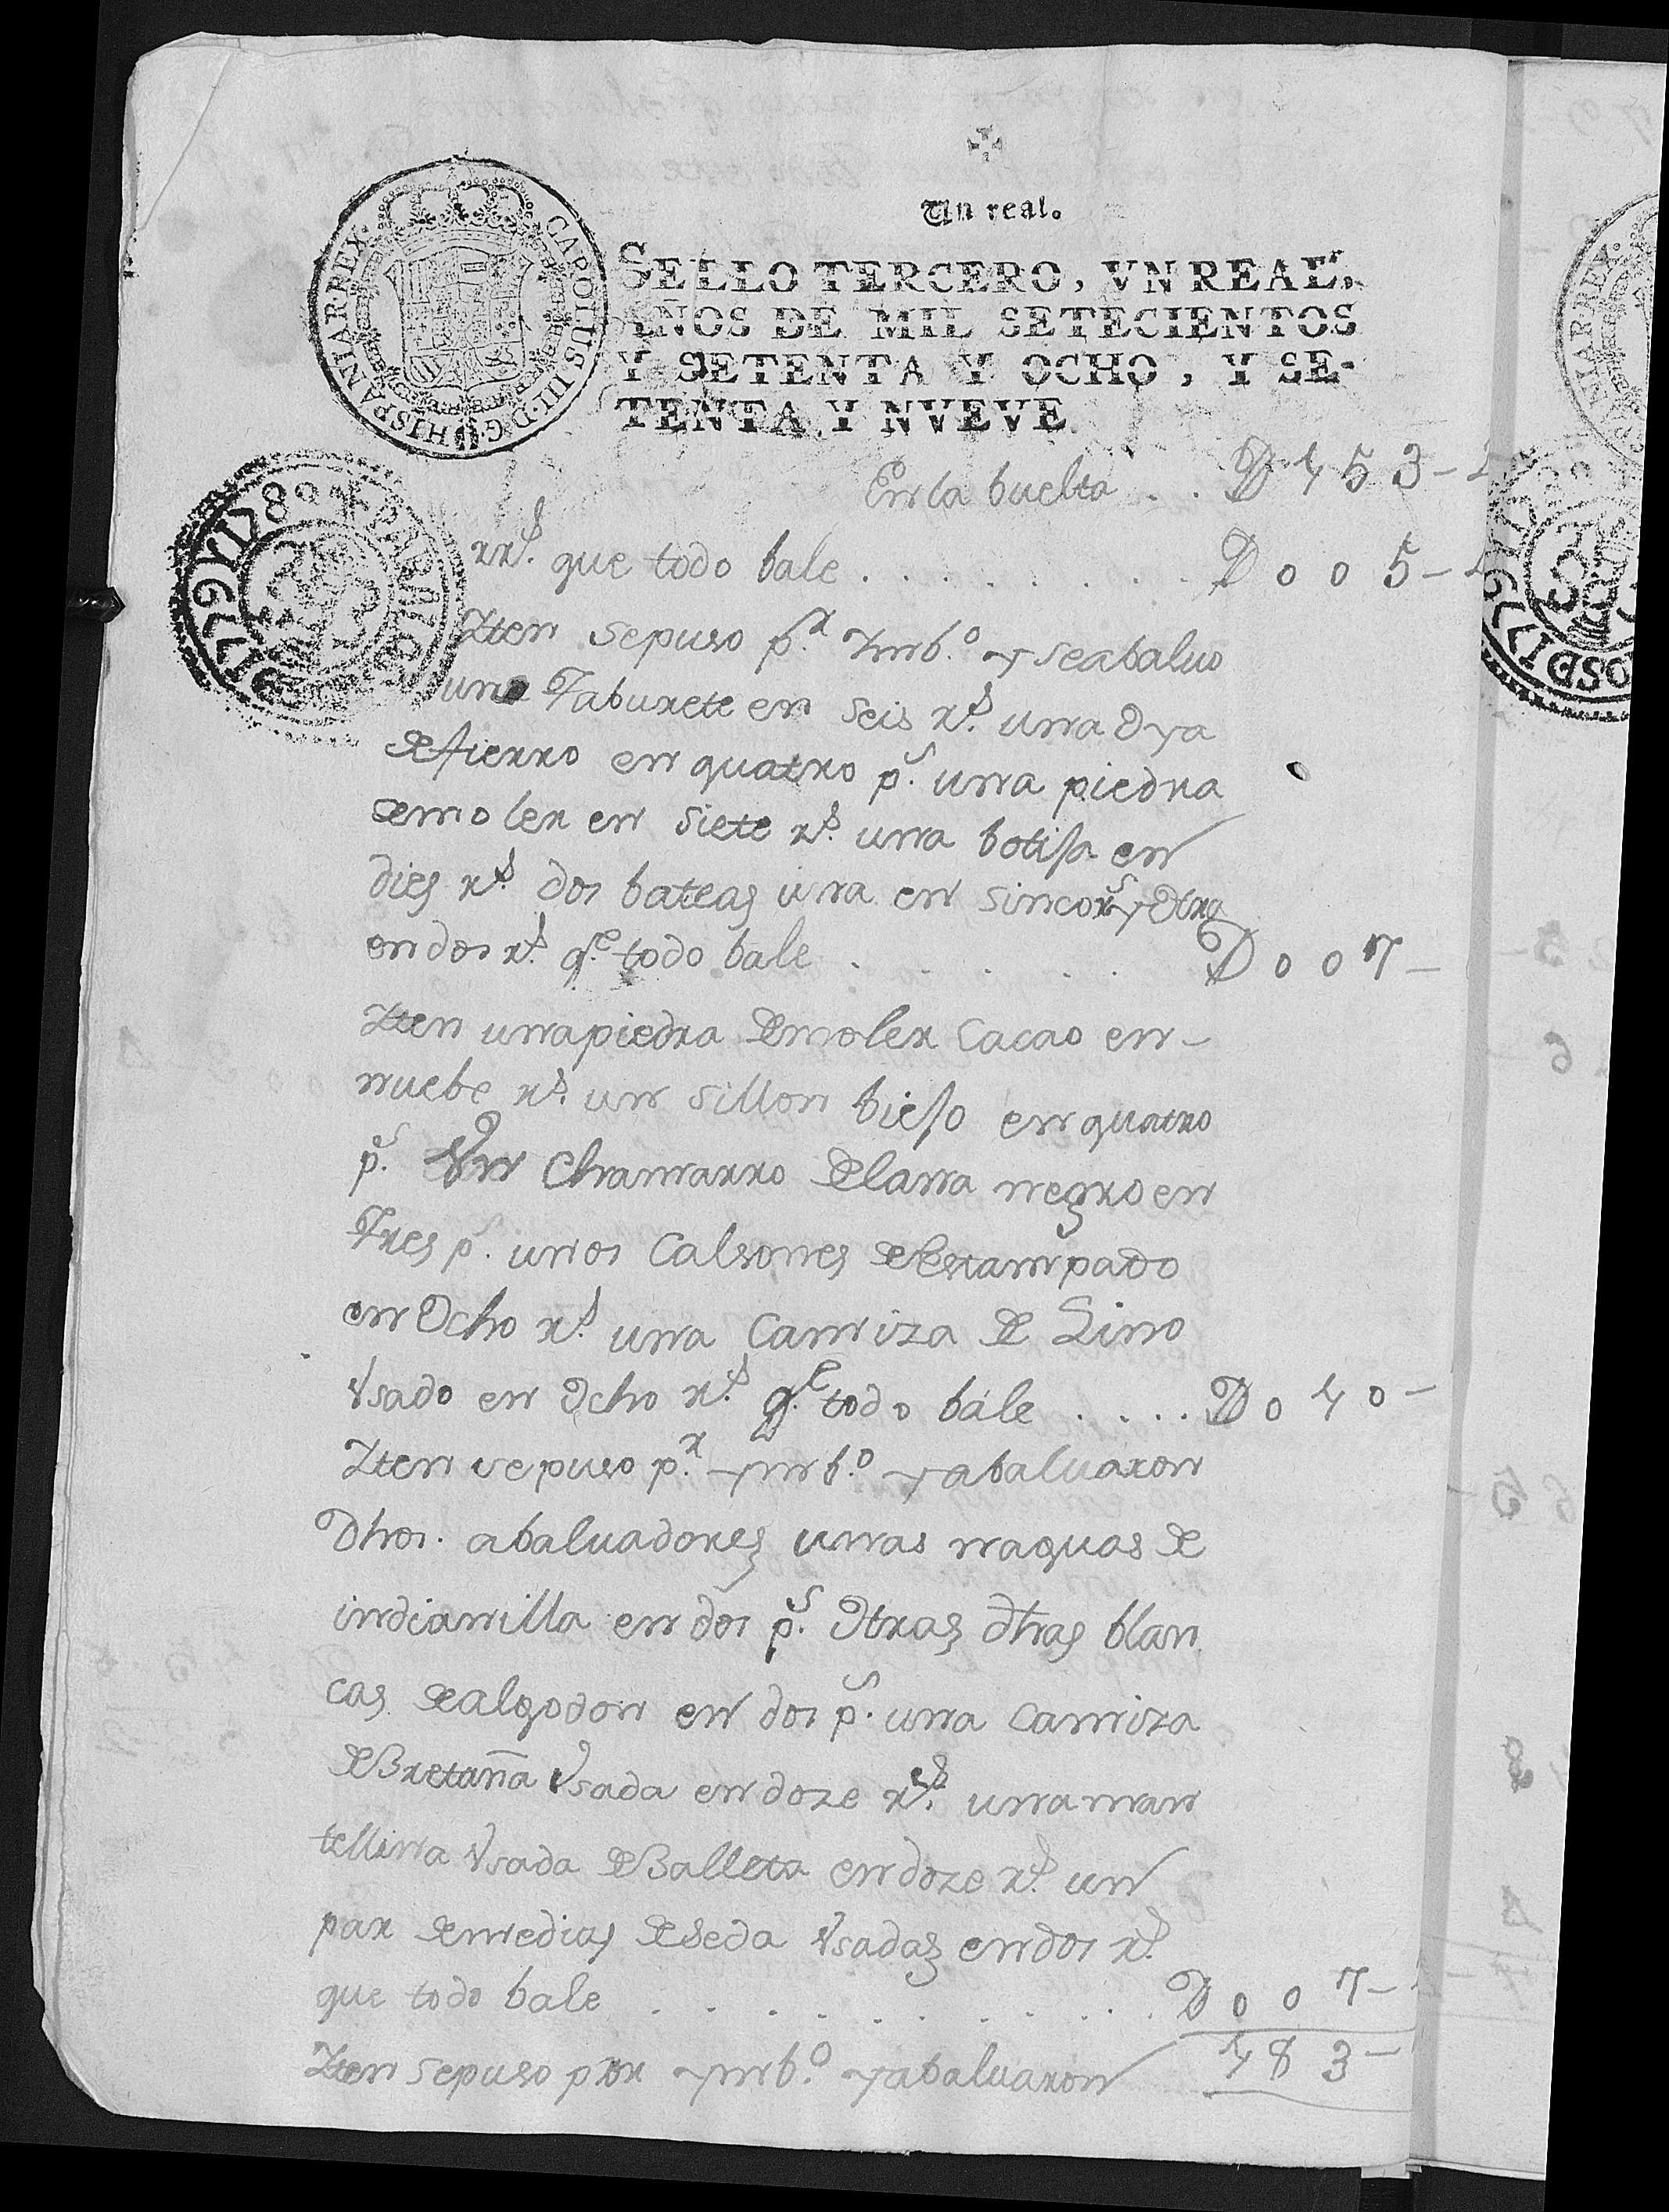 Un real.
SELLO TERCERO, VN REAL,
AÑOS DE MIL SETECIENTOS
Y SETENTA Y OCHO, Y SE-
TENTA Y NVEVE.
CAROLUS III·D·G· HISPANIAR REX·
En la buelta . . D453-
rr.s que todo bale . . . . . . . . . D005-
Yten se puso p.r Ynb.o y se abaluo
un Taburete en seis r.s una Oya
de fierro en quatro p.s una piedra
de moler en siete r.s una botija en
dies r.s dos bateas una en sinco r.s y Otra
en dos r.s q.e todo bale . . . . . . D007-
Yten una piedra de moler Cacao en-
nuebe r.s un sillon biejo en quatro
p.s Un Chamarro de lana negro en
Tres p.s unos Calsones de Estampado
en Ocho r.s una Camiza de Lino
Vsado en Ocho r.s q.e todo bale . . . . D040-
Yten se puso p.r ynb.o y abaluaron
Dhos. abaluadores unas naguas de
indianilla en dos p.s Otras dhas blan
cas de algodon en dos p.s una Camiza
de Bretaña Vsada en doze r.es una man
tellina Vsada de Balleta en doze r.s un
par de medias de seda Vsadas en dos r.s
que todo bale . . . . . . . . . D007-
Yten se puso por ynb.o y abaluaron 483-